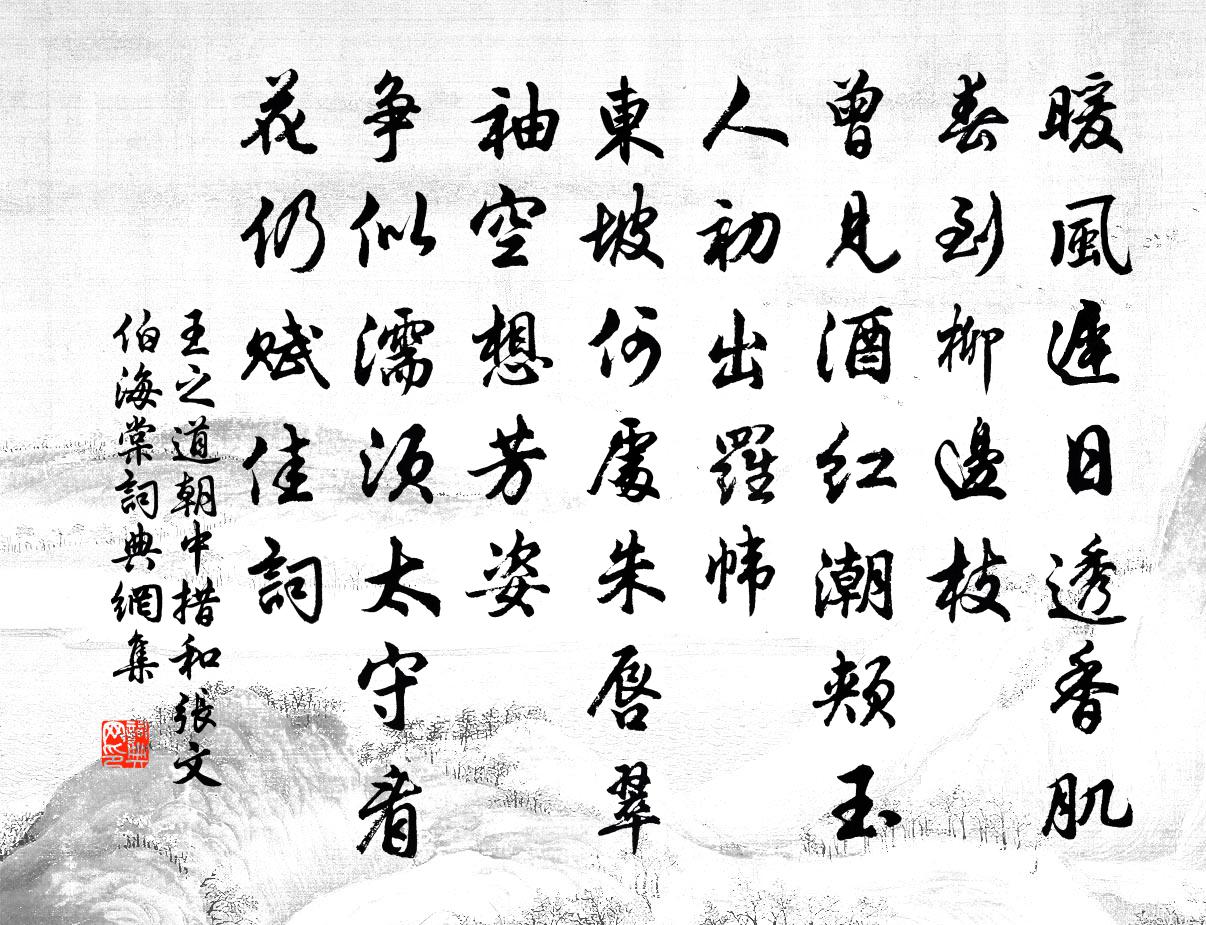 暖風遲日透香肌
春到柳邊枝
曾見酒紅潮頰玉
人初出羅幃
東坡何處朱唇翠
袖空想芳姿
爭似濡須太守看
花仍賦佳詞
王之道朝中措和張文
伯海棠詞典網集